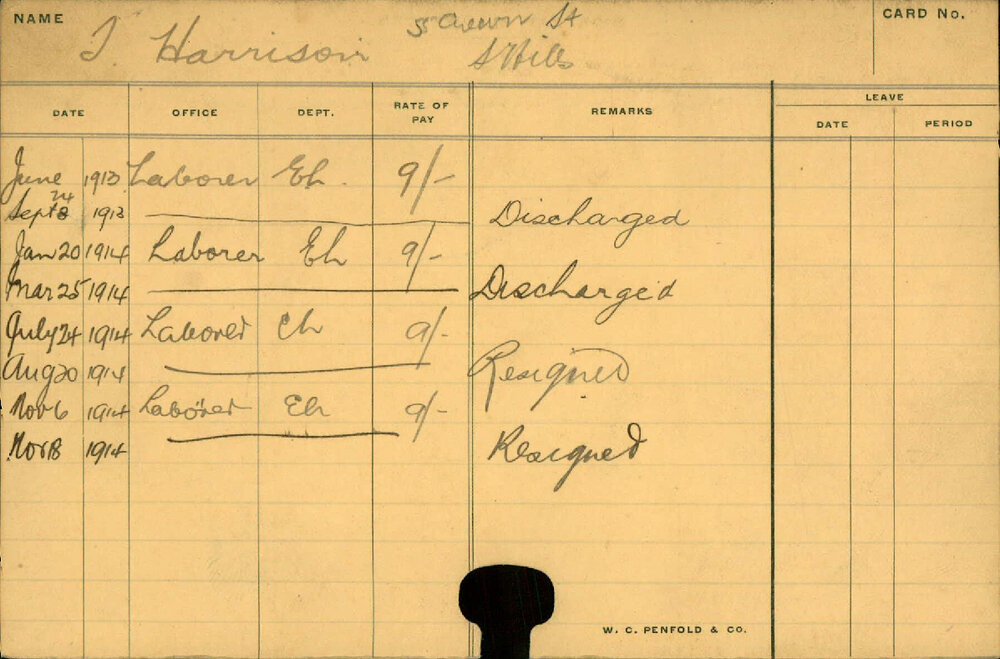 NAME T. Harrison 55 Crown St CARD No.
S Hills
DATE OFFICE DEPT. RATE OF PAY REMARKS LEAVE
DATE PERIOD
June 1913 Laborer Eh. 9/-
Sept 24 1913 Discharged
Jan 20 1914 Laborer Eh 9/-
Mar 25 1914 Discharged
July 24 1914 Laborer Eh 9/-
Aug 20 1914 Resigned
Nov 6 1914 Laborer Eh 9/-
Nov 18 1914 Resigned
W. C. PENFOLD & CO.